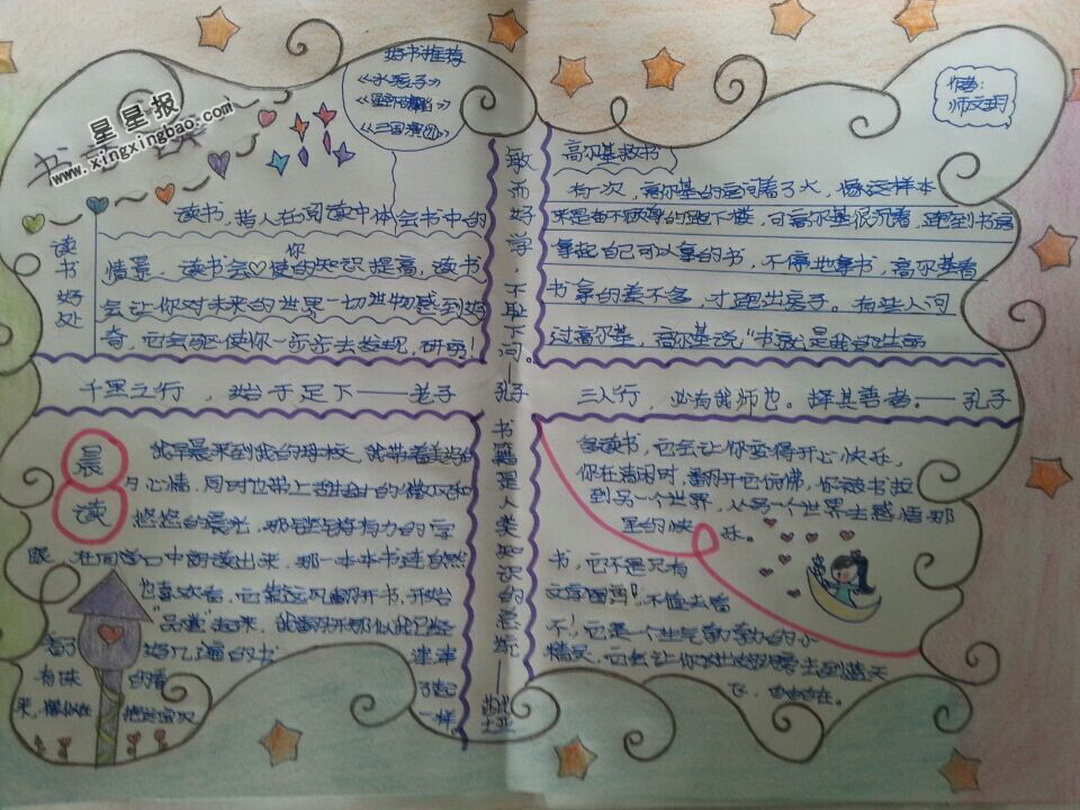 星星报
www.xingxingbao.com
书
好书推荐
《水孩子》
《三国演义》
作者：
师文玥
读书好处
读书，指人在阅读中体会书中的
情景，读书会使你的知识提高，读书
会让你对未来的世界一切世物感到好
奇，它会驱使你一步步去发现，研究！
敏而好学，不耻下问。—孔子
高尔基救书
有一次，高尔基的房间着了火，像这样本
来是的跑下楼，可高尔基很沉着，跑到书房
拿起自己可以拿的书，不停地拿书，高尔基看
书拿的差不多，才跑出房子。有些人问
过高尔基，高尔基说“书就是我的生命
千里之行，始于足下——老子
三人行，必有我师也。择其善者。——孔子
晨读
我早晨来到我的母校，就带着美好的
心情，同时也带上甜甜的微笑和
悠悠的晨光，那铿锵有力的字
眼，在同学口中朗读出来，那一本本书连自然
也喜欢看，它常远风翻开书，开始
“品尝”起来，我翻开那似乎已经
看了好几遍的书 津津
有味的看了起
来，像似在把这宝贝一样
书籍是人类知识的总统——莎士比亚
多读书，它会让你变得开心快乐，
你在清闲时，翻开它仿佛，你被书拉
到另一个世界，从另一个世界去感悟那
里的快乐。
书，它不是只有
文字图画，不值去看
不！它是一个生气勃勃的小
精灵，它会让你去到蓝天
飞，自由自在。